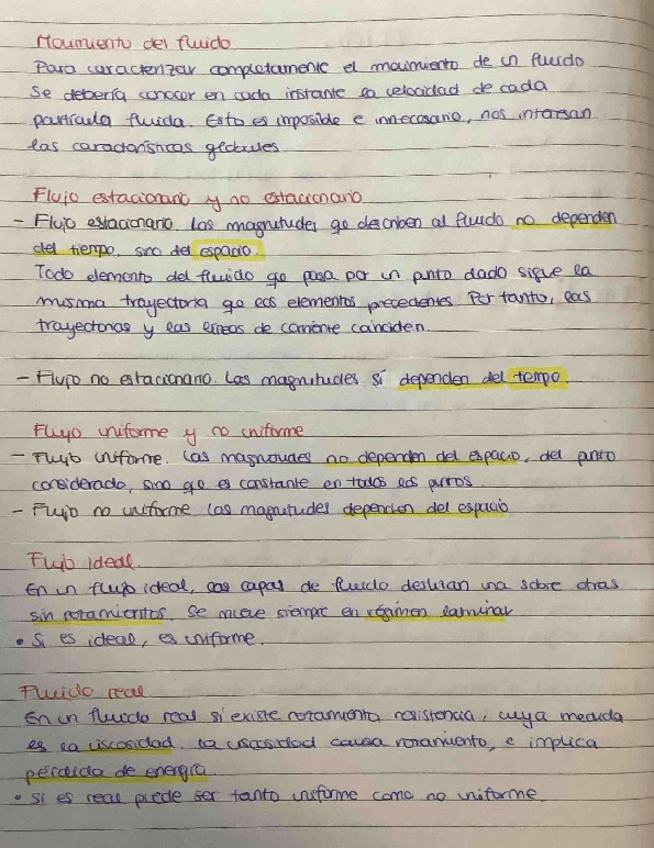 Movimiento del fluido
Para caracterizar completamente el movimiento de un fluido
se debería conocer en cada instante la velocidad de cada
partícula fluida. Esto es imposible e innecesario, nos interesan
las características globales.
Flujo estacionario y no estacionario
- Flujo estacionario. Las magnitudes qe describen al fluido no dependen
del tiempo, sino del espacio.
Todo elemento del fluido qe pasa por un punto dado sigue la
misma trayectoria qe los elementos precedentes. Por tanto, las
trayectorias y las líneas de corriente coinciden.
- Flujo no estacionario. Las magnitudes sí dependen del tiempo
Flujo uniforme y no uniforme
- Flujo uniforme. Las magnitudes no dependen del espacio, del punto
considerado, sino qe es constante en todos los puntos.
- Flujo no uniforme las magnitudes dependen del espacio
Flujo ideal.
En un flujo ideal, las capas de fluido deslizan una sobre otras
sin rozamientos. Se mueve siempre en régimen laminar
• Si es ideal, es uniforme.
Fluido real
En un fluido real si existe rozamiento, resistencia, cuya medida
es la viscosidad. La viscosidad causa rozamiento, e implica
pérdida de energía.
• Si es real puede ser tanto uniforme como no uniforme.